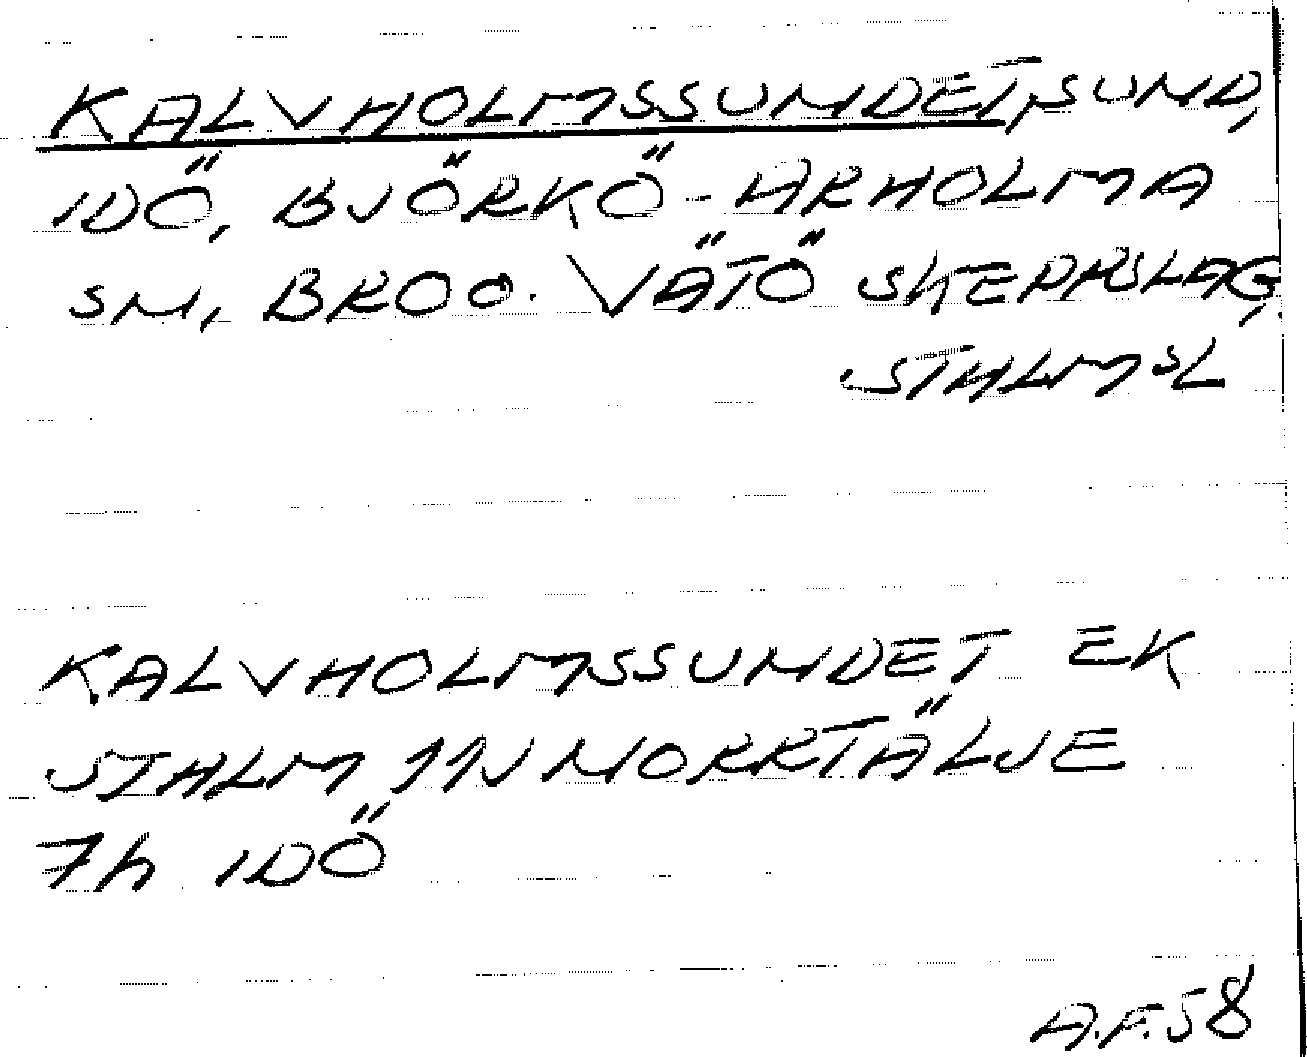 KALVHOLMSSUNDET, SUND,
IDÖ, BJÖRKÖ-ARHOLMA
SN, BRO O. VÄTÖ SKEPPSLAG,
STHLMS L
KALVHOLMSSUNDET EK
STHLM 11NV NORRTÄLJE
7h IDÖ
A.F. 58